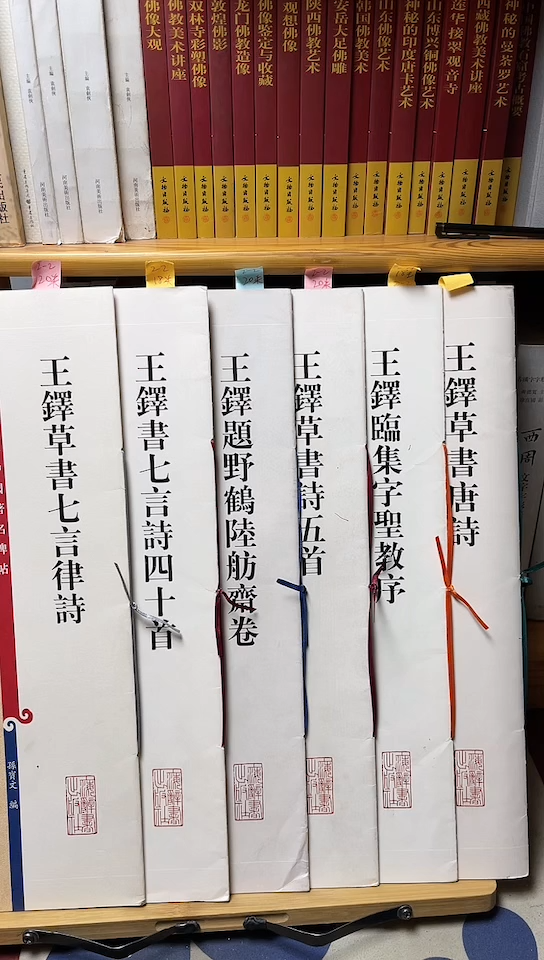 佛像大观
佛教美术讲座
双林寺彩塑佛像
敦煌佛影
龙门佛教造像
佛像鉴定与收藏
观想佛像
陕西佛教艺术
安岳大足佛雕
韩国佛教美术
山东佛像艺术
神秘的印度唐卡艺术
山东博兴铜佛像艺术
莲华接翠观音寺
西藏佛教美术讲座
神秘的曼荼罗艺术
河南美术出版社
河南美术出版社
河南美术出版社
河南美术出版社
出版社
王鐸草書七言律詩
王鐸書七言詩四十首
王鐸題野鶴陸舫齋卷
王鐸草書詩五首
王鐸臨集字聖教序
王鐸草書唐詩
著名碑帖
孫寶文 編
西周